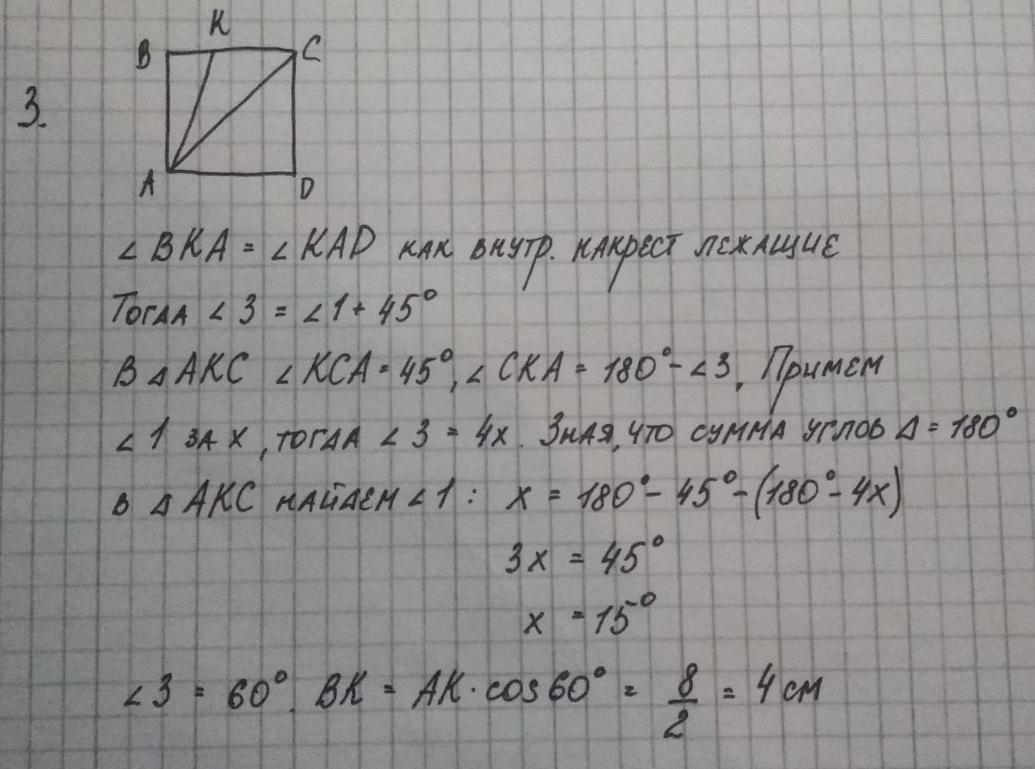 K
B C
3.
A D
∠BKA = ∠KAD как внутр. накрест лежащие
Тогда ∠3 = ∠1 + 45°
В △AKC ∠KCA = 45°, ∠CKA = 180° - ∠3, Примем
∠1 за x, тогда ∠3 = 4x. Зная, что сумма углов △ = 180°
в △AKC найдем ∠1: x = 180° - 45° - (180° - 4x)
3x = 45°
x = 15°
∠3 = 60°. BK = AK · cos60° = 8/2 = 4 см